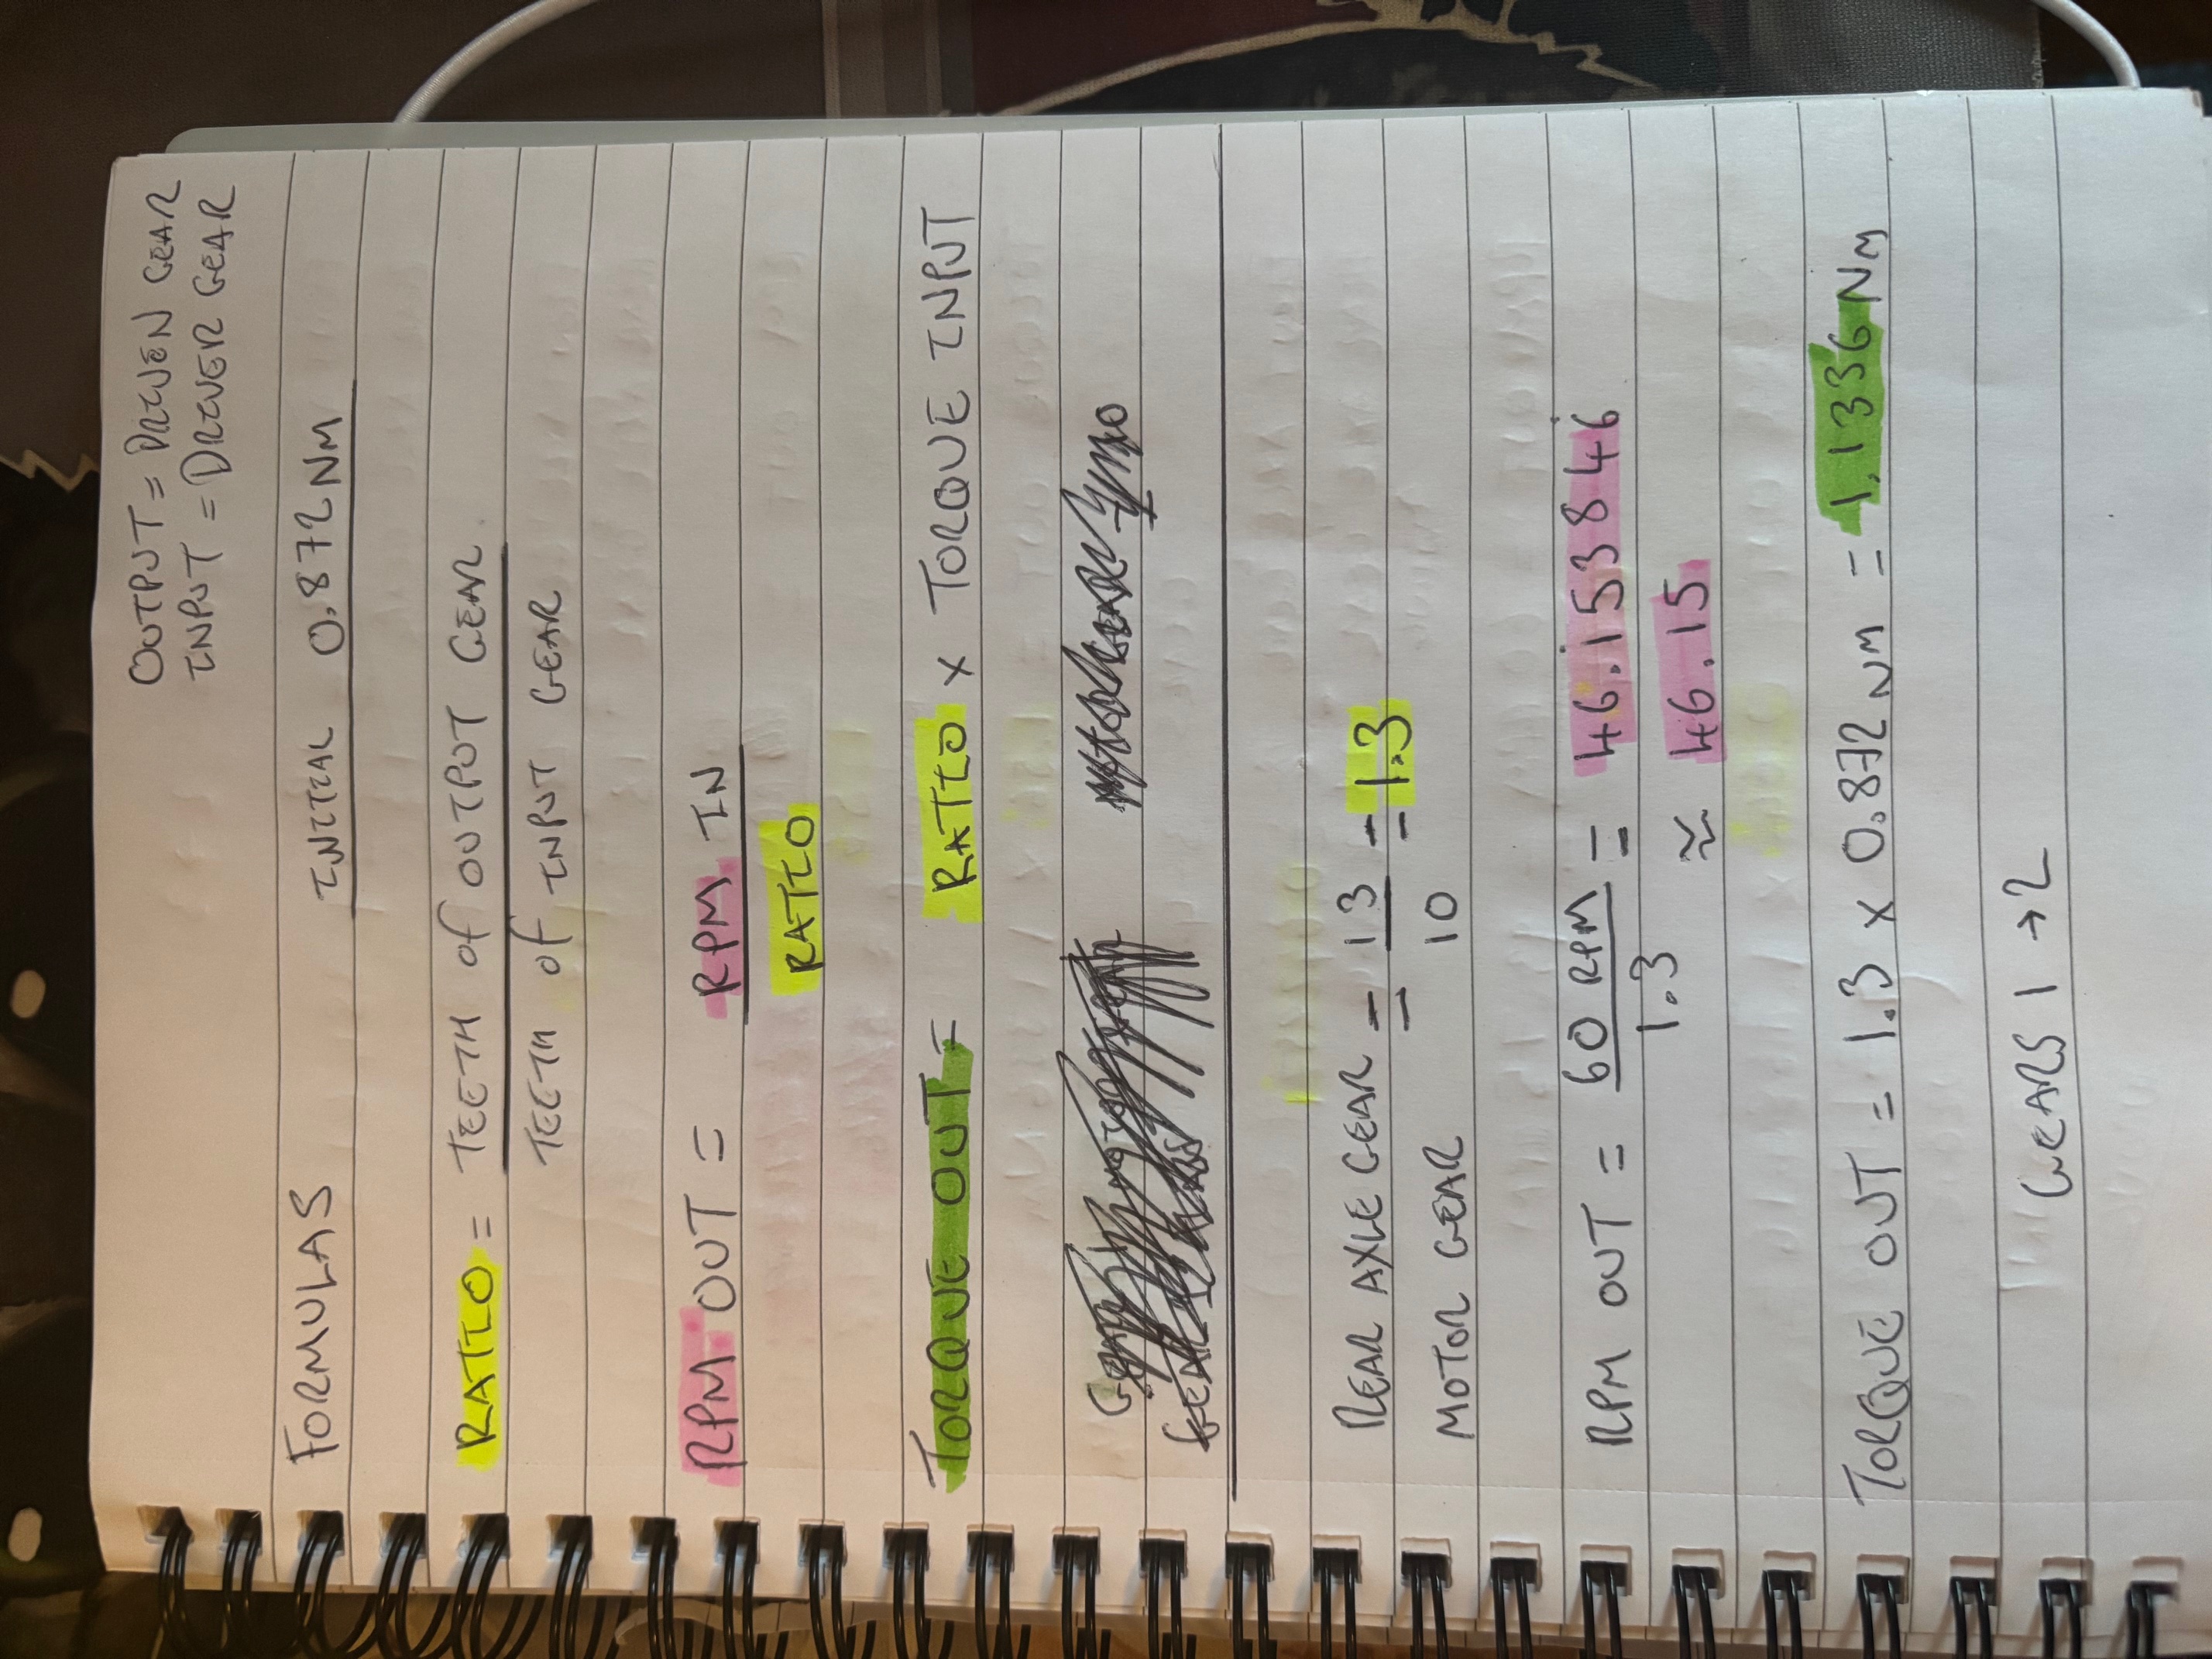 OUTPUT = DRIVEN GEAR
INPUT = DRIVER GEAR
FORMULAS INITIAL 0.872 NM
RATIO = TEETH of OUTPUT GEAR
TEETH of INPUT GEAR
RPM OUT = RPM IN
RATIO
TORQUE OUT = RATIO x TORQUE INPUT
REAR AXLE GEAR = 13 = 1.3
MOTOR GEAR 10
RPM OUT = 60 RPM = 46.1̇53846̇
1.3
≈ 46.15
TORQUE OUT = 1.3 x 0.872 NM = 1.1336 NM
GEARS 1 → 2